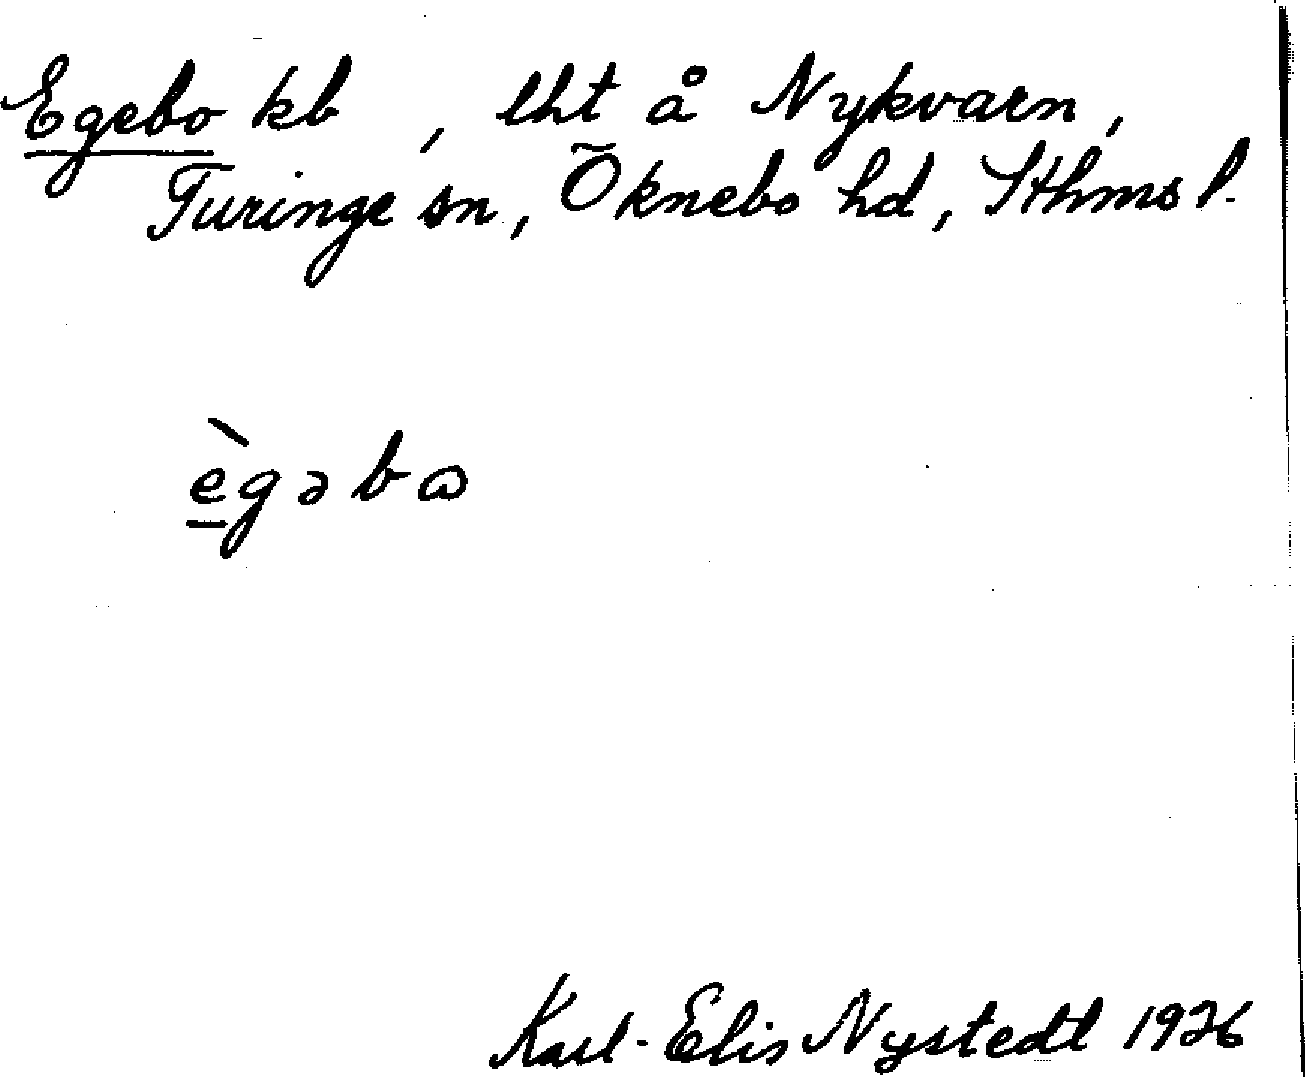 Egebo kb, lht å Nykvarn,
Turinge sn, Öknebo hd, Sthms l.
ègəbɷ
Karl-Elis Nystedt 1926